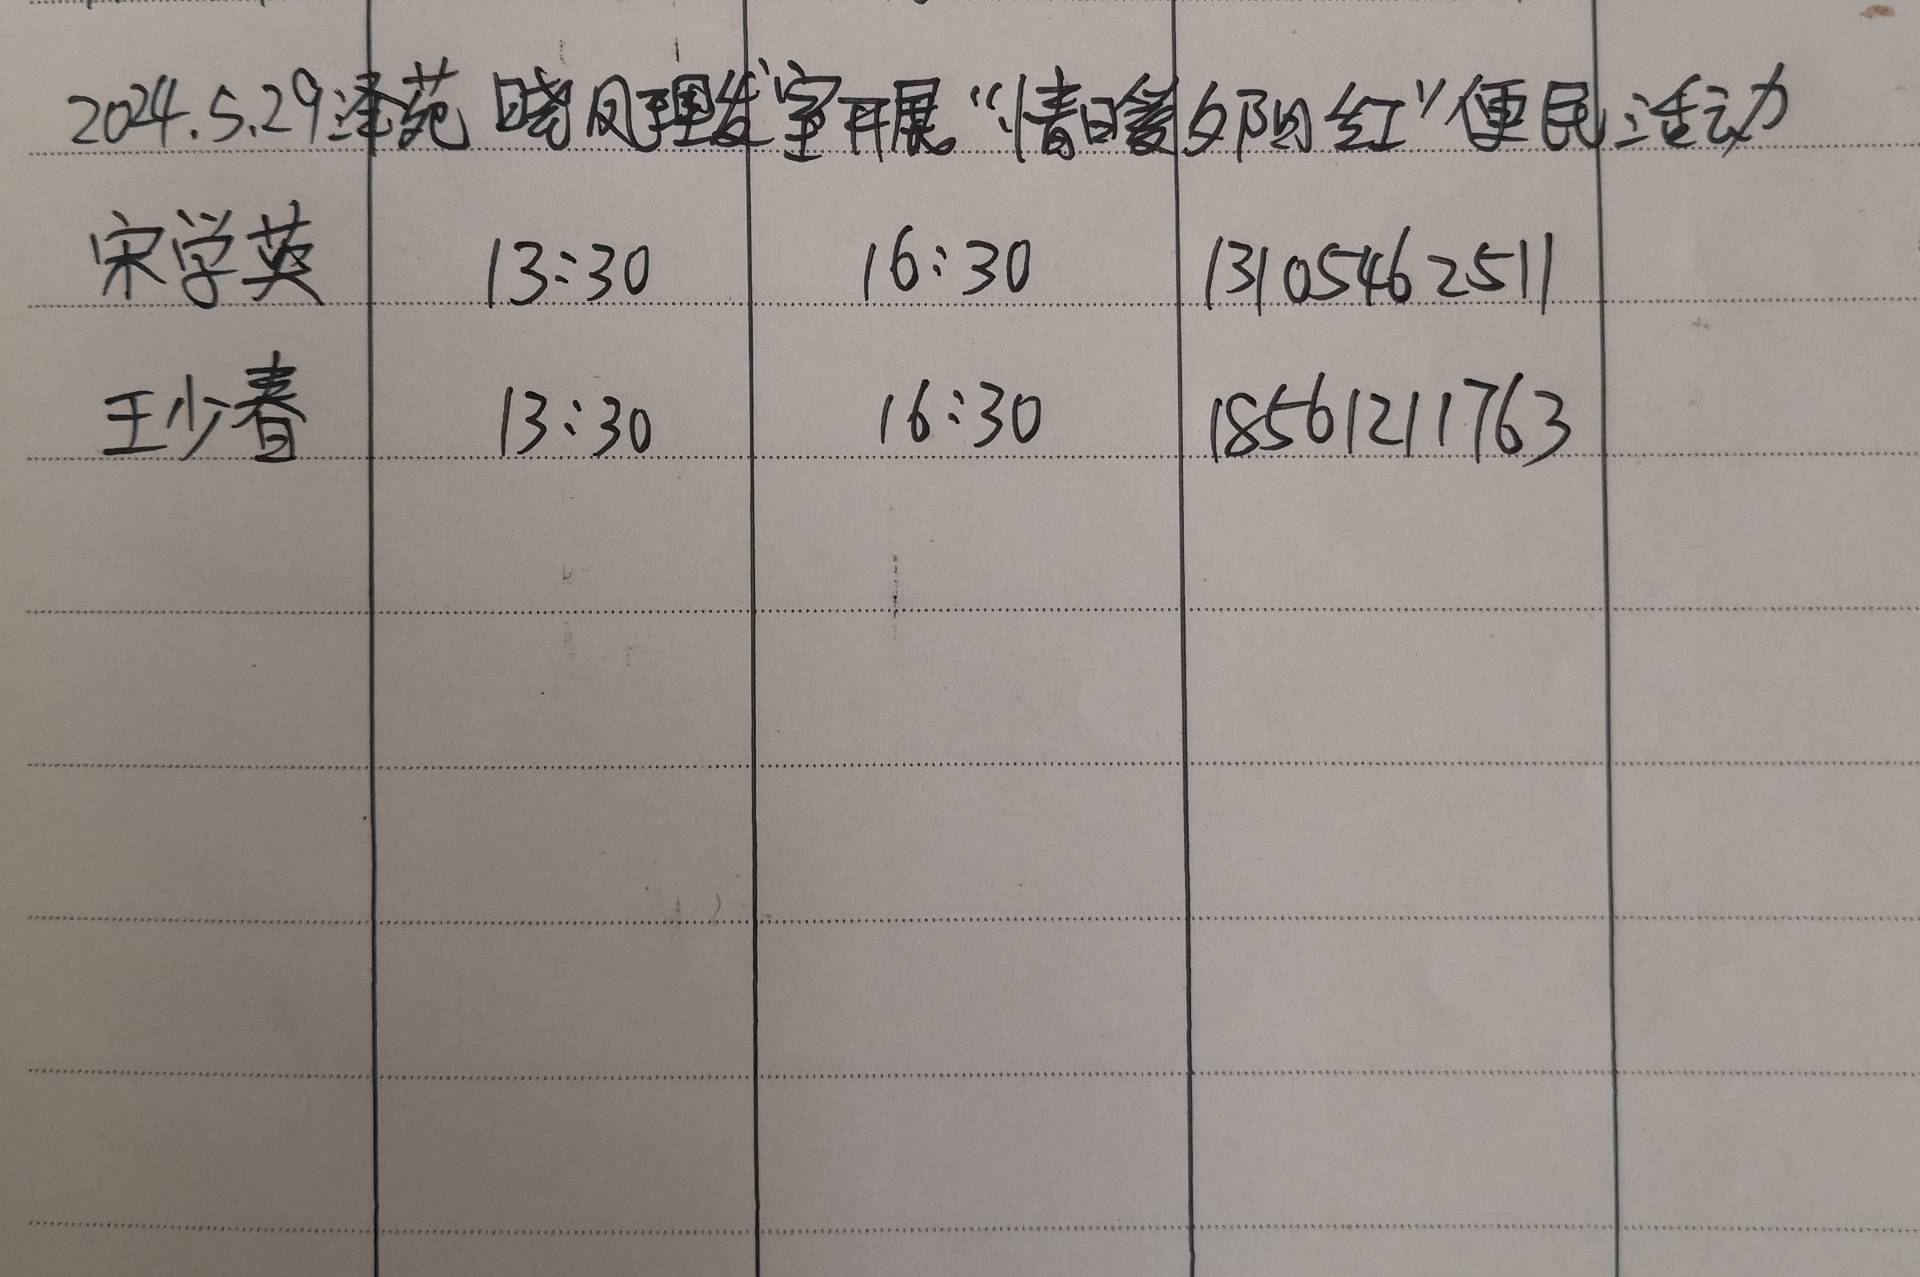 2024.5.29泽苑晓风理发室开展“情暖夕阳红”便民活动
宋学英 13:30 16:30 13105462511
王少春 13:30 16:30 18561211763